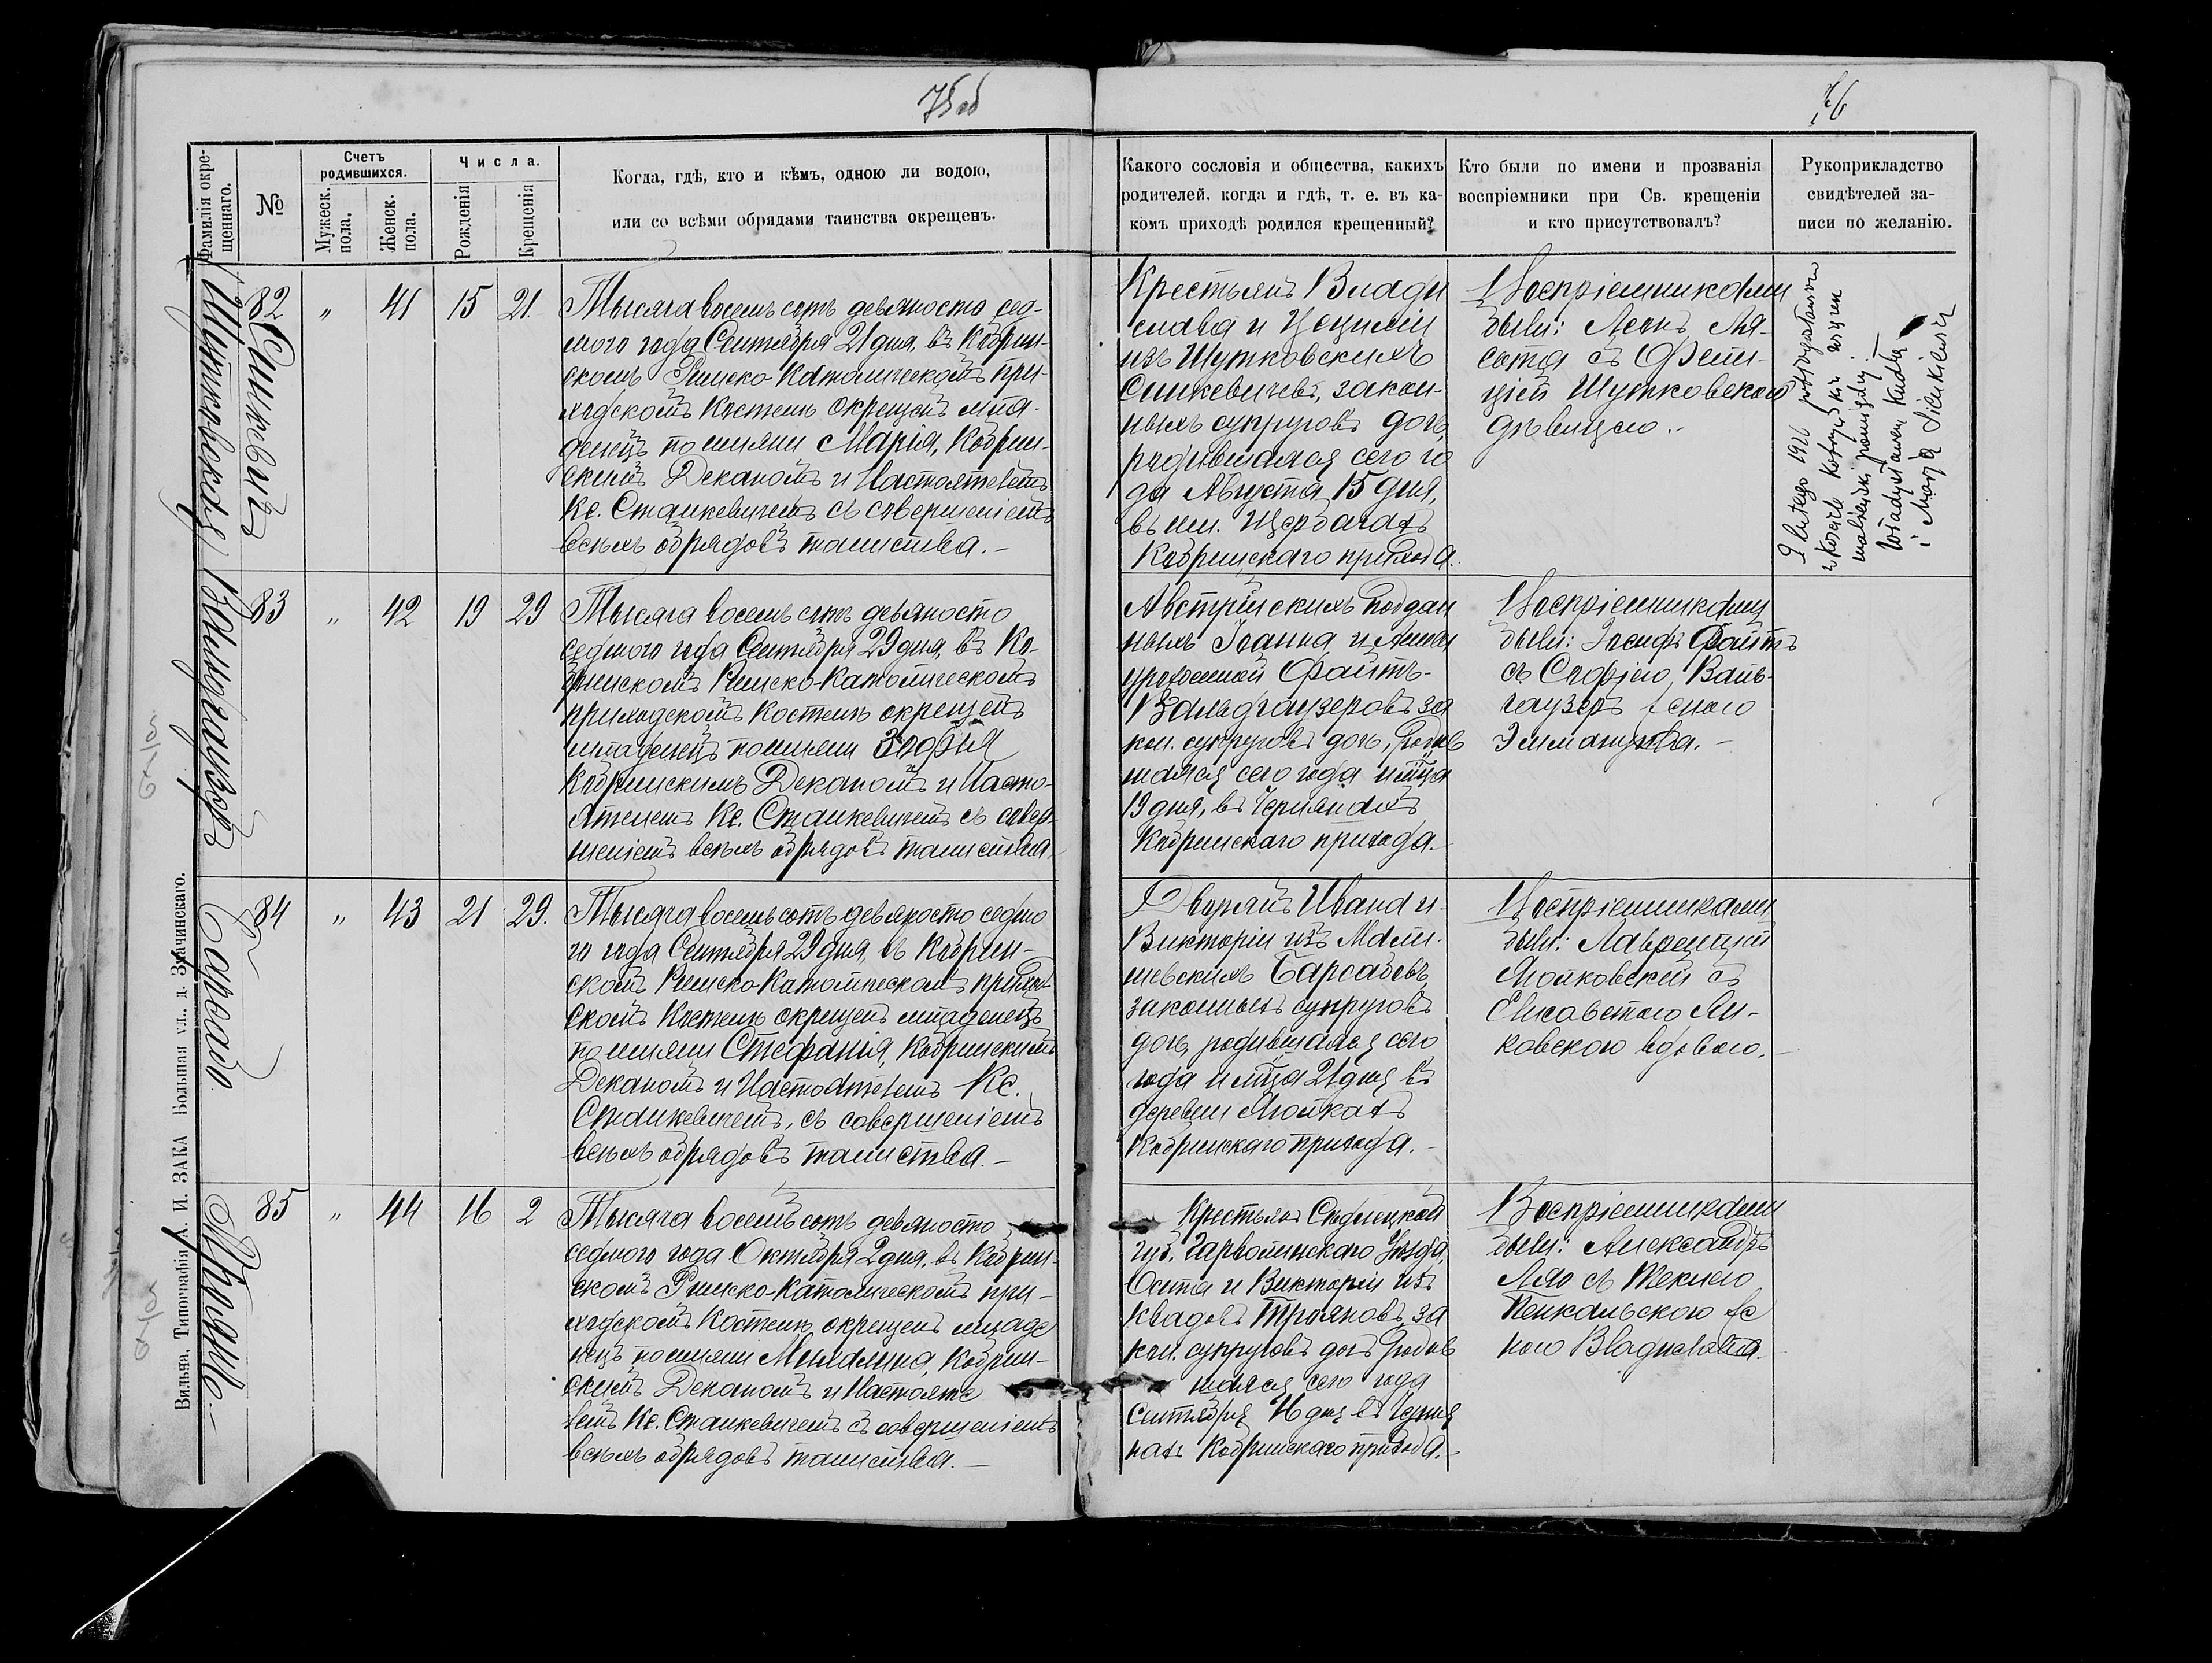 75об
76
Фамилія окре-
щеннаго.
№
Счетъ
родившихся.
Мужеск.
пола.
Женск.
пола.
Числа.
Рожденія
Крещенія
Когда, гдѣ, кто и кѣмъ, одною ли водою,
или со всѣми обрядами таинства окрещенъ.
Какого сословія и общества, какихъ
родителей, когда и гдѣ, т. е. въ ка-
комъ приходѣ родился крещенный?
Кто были по имени и прозванія
воспріемники при Св. крещеніи
и кто присутствовалъ?
Рукоприкладство
свидѣтелей за-
писи по желанію.
Синкевичъ
82
"
41
15
21.
Тысяча восемьсотъ девяносто сед-
мого года Сентября 21 дня, въ Кобрин-
скомъ Римско-Католическомъ при-
ходскомъ Костелѣ окрещенъ мла-
денецъ по имени Марія, Кобрин-
скимъ Деканомъ и Настоятелемъ
Кс. Станкевичемъ съ совершеніемъ
всѣхъ обрядовъ таинства.–
Крестьянъ Влади
слава и Цециліи
изъ Шутковскихъ
Синкевичевъ, закон-
ныхъ супруговъ дочь,
родившаяся сего го
да Августа 15 дня,
въ им. Щербачахъ
Кобринскаго прихода.
Воспріемниками
были: Леонъ
съ Фели-
ціей Шутковскою
дѣвицею.–
9 lutego 1926
w Kościele Kobryńskim
małżeński pomiędzy
Władysławem
i Marją Sienkiewicz
Вальдгаузеръ
83
"
42
19
29
Тысяча восемьсотъ девяносто
седмого года Сентября 29 дня, въ Ко-
бринскомъ Римско-Католическомъ
приходскомъ Костелѣ окрещенъ
младенецъ по имени Зофія
Кобринскимъ Деканомъ и Насто-
ятелемъ Кс. Станкевичемъ съ совер-
шеніемъ всѣхъ обрядовъ таинства.
Австрійскихъ поддан
ныхъ Іоанна и Анны
урожонной Файтъ-
Вальдгаузеровъ за
кон. супруговъ дочь, родив
шаяся сего года и мѣца
19 дня, въ Чернянахъ
Кобринскаго прихода.–
Воспріемниками
были: Іосифъ Файтъ
съ Софіею Валь-
гаузеръ женою
Эммануила.–
Барсоба
84
"
43
21
29.
Тысяча восемьсотъ девяносто седмо
го года Сентября 29 дня, въ Кобрин-
скомъ Римско-Католическомъ приход-
скомъ Костелѣ окрещенъ младенецъ
по имени Стефанія, Кобринскимъ
Деканомъ и Настоятелемъ Кс.
Станкевичемъ, съ совершеніемъ
всѣхъ обрядовъ таинства.–
Дворянъ Ивана и
Викторіи изъ
законныхъ супруговъ
дочь, родившаяся сего
года и мѣца 21 дня въ
деревни
Кобринскаго прихода.–
Воспріемниками
были: Лаврентій
съ
Елисаветою
вдовою.–
Троянъ.–
85
"
44
16
2
Тысяча восемьсотъ девяносто
седмого года Октября 2 дня, въ Кобрин-
скомъ Римско-Католическомъ при-
ходскомъ Костелѣ окрещенъ младе
нецъ по имени Михалина, Кобрин-
скимъ Деканомъ и Настояте
лемъ Кс. Станкевичемъ съ совершеніемъ
всѣхъ обрядовъ таинства.–
Крестьянъ Сѣдлецкой
губ. Гарволинскаго уѣзда,
и Викторіи изъ
Трояновъ за
кон. супруговъ дочь родив
шаяся сего года
Сентября 16 дня въ Черня
нахъ Кобринскаго прихода.–
Воспріемниками
были: Александръ
съ Теклею
Пенкальскою же
ною Владислава.
Вильна, Типографія А. И. ЗАКА Большая ул., д. Значинскаго.